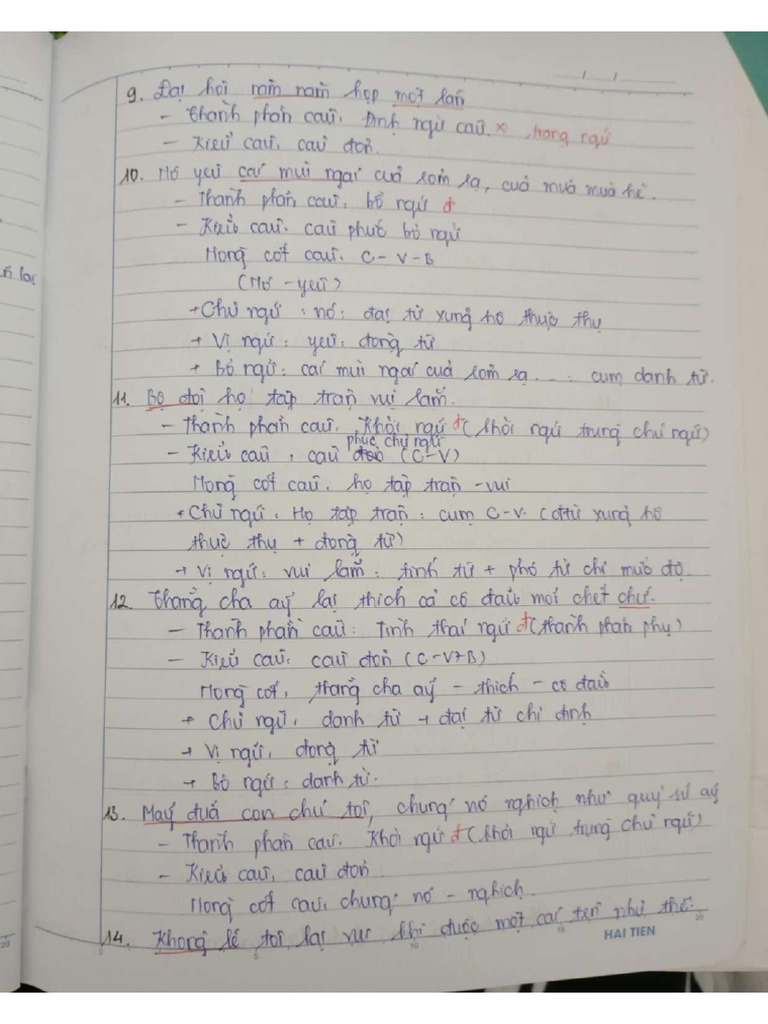 9. Đại hội năm năm họp một lần
- Thành phần câu: Định ngữ câu. x trạng ngữ
- Kiểu câu: câu đơn.
10. Nó yêu cái mùi ngai của rơm rạ, của mưa mùa hè.
- Thành phần câu: bổ ngữ đ
- Kiểu câu: câu phức bổ ngữ
Nòng cốt câu: C - V - B
(Nó - yêu)
+ Chủ ngữ: nó: đại từ xưng hô thực thụ
+ Vị ngữ: yêu: động từ
+ Bổ ngữ: cái mùi ngai của rơm rạ...: cụm danh từ.
n lại
11. Bộ đội họ tập trận vui lắm.
- Thành phần câu: Khởi ngữ đ (khởi ngữ trùng chủ ngữ)
- Kiểu câu: câu phức chủ ngữ (C-V)
Nòng cốt câu: họ tập trận - vui
+ Chủ ngữ: Họ tập trận: cụm C-V. (đtừ xưng hô
thực thụ + động từ)
+ Vị ngữ: vui lắm: tính từ + phó từ chỉ mức độ.
12. Thằng cha ấy lại thích cả cô đào mới chết chứ.
- Thành phần câu: Tình thái ngữ đ (thành phần phụ)
- Kiểu câu: câu đơn (C-V+B)
Nòng cốt: thằng cha ấy - thích - cô đào
+ Chủ ngữ: danh từ + đại từ chỉ định
+ Vị ngữ: động từ
+ Bổ ngữ: danh từ.
13. Mấy đứa con chú tôi, chúng nó nghịch như quỷ sứ ấy
- Thành phần câu: Khởi ngữ đ (khởi ngữ trùng chủ ngữ)
- Kiểu câu: câu đơn
Nòng cốt câu: chúng nó - nghịch.
14. Không lẽ tôi lại vui khi được một cái tên như thế.
0 5 10 15 20
HAI TIEN
20